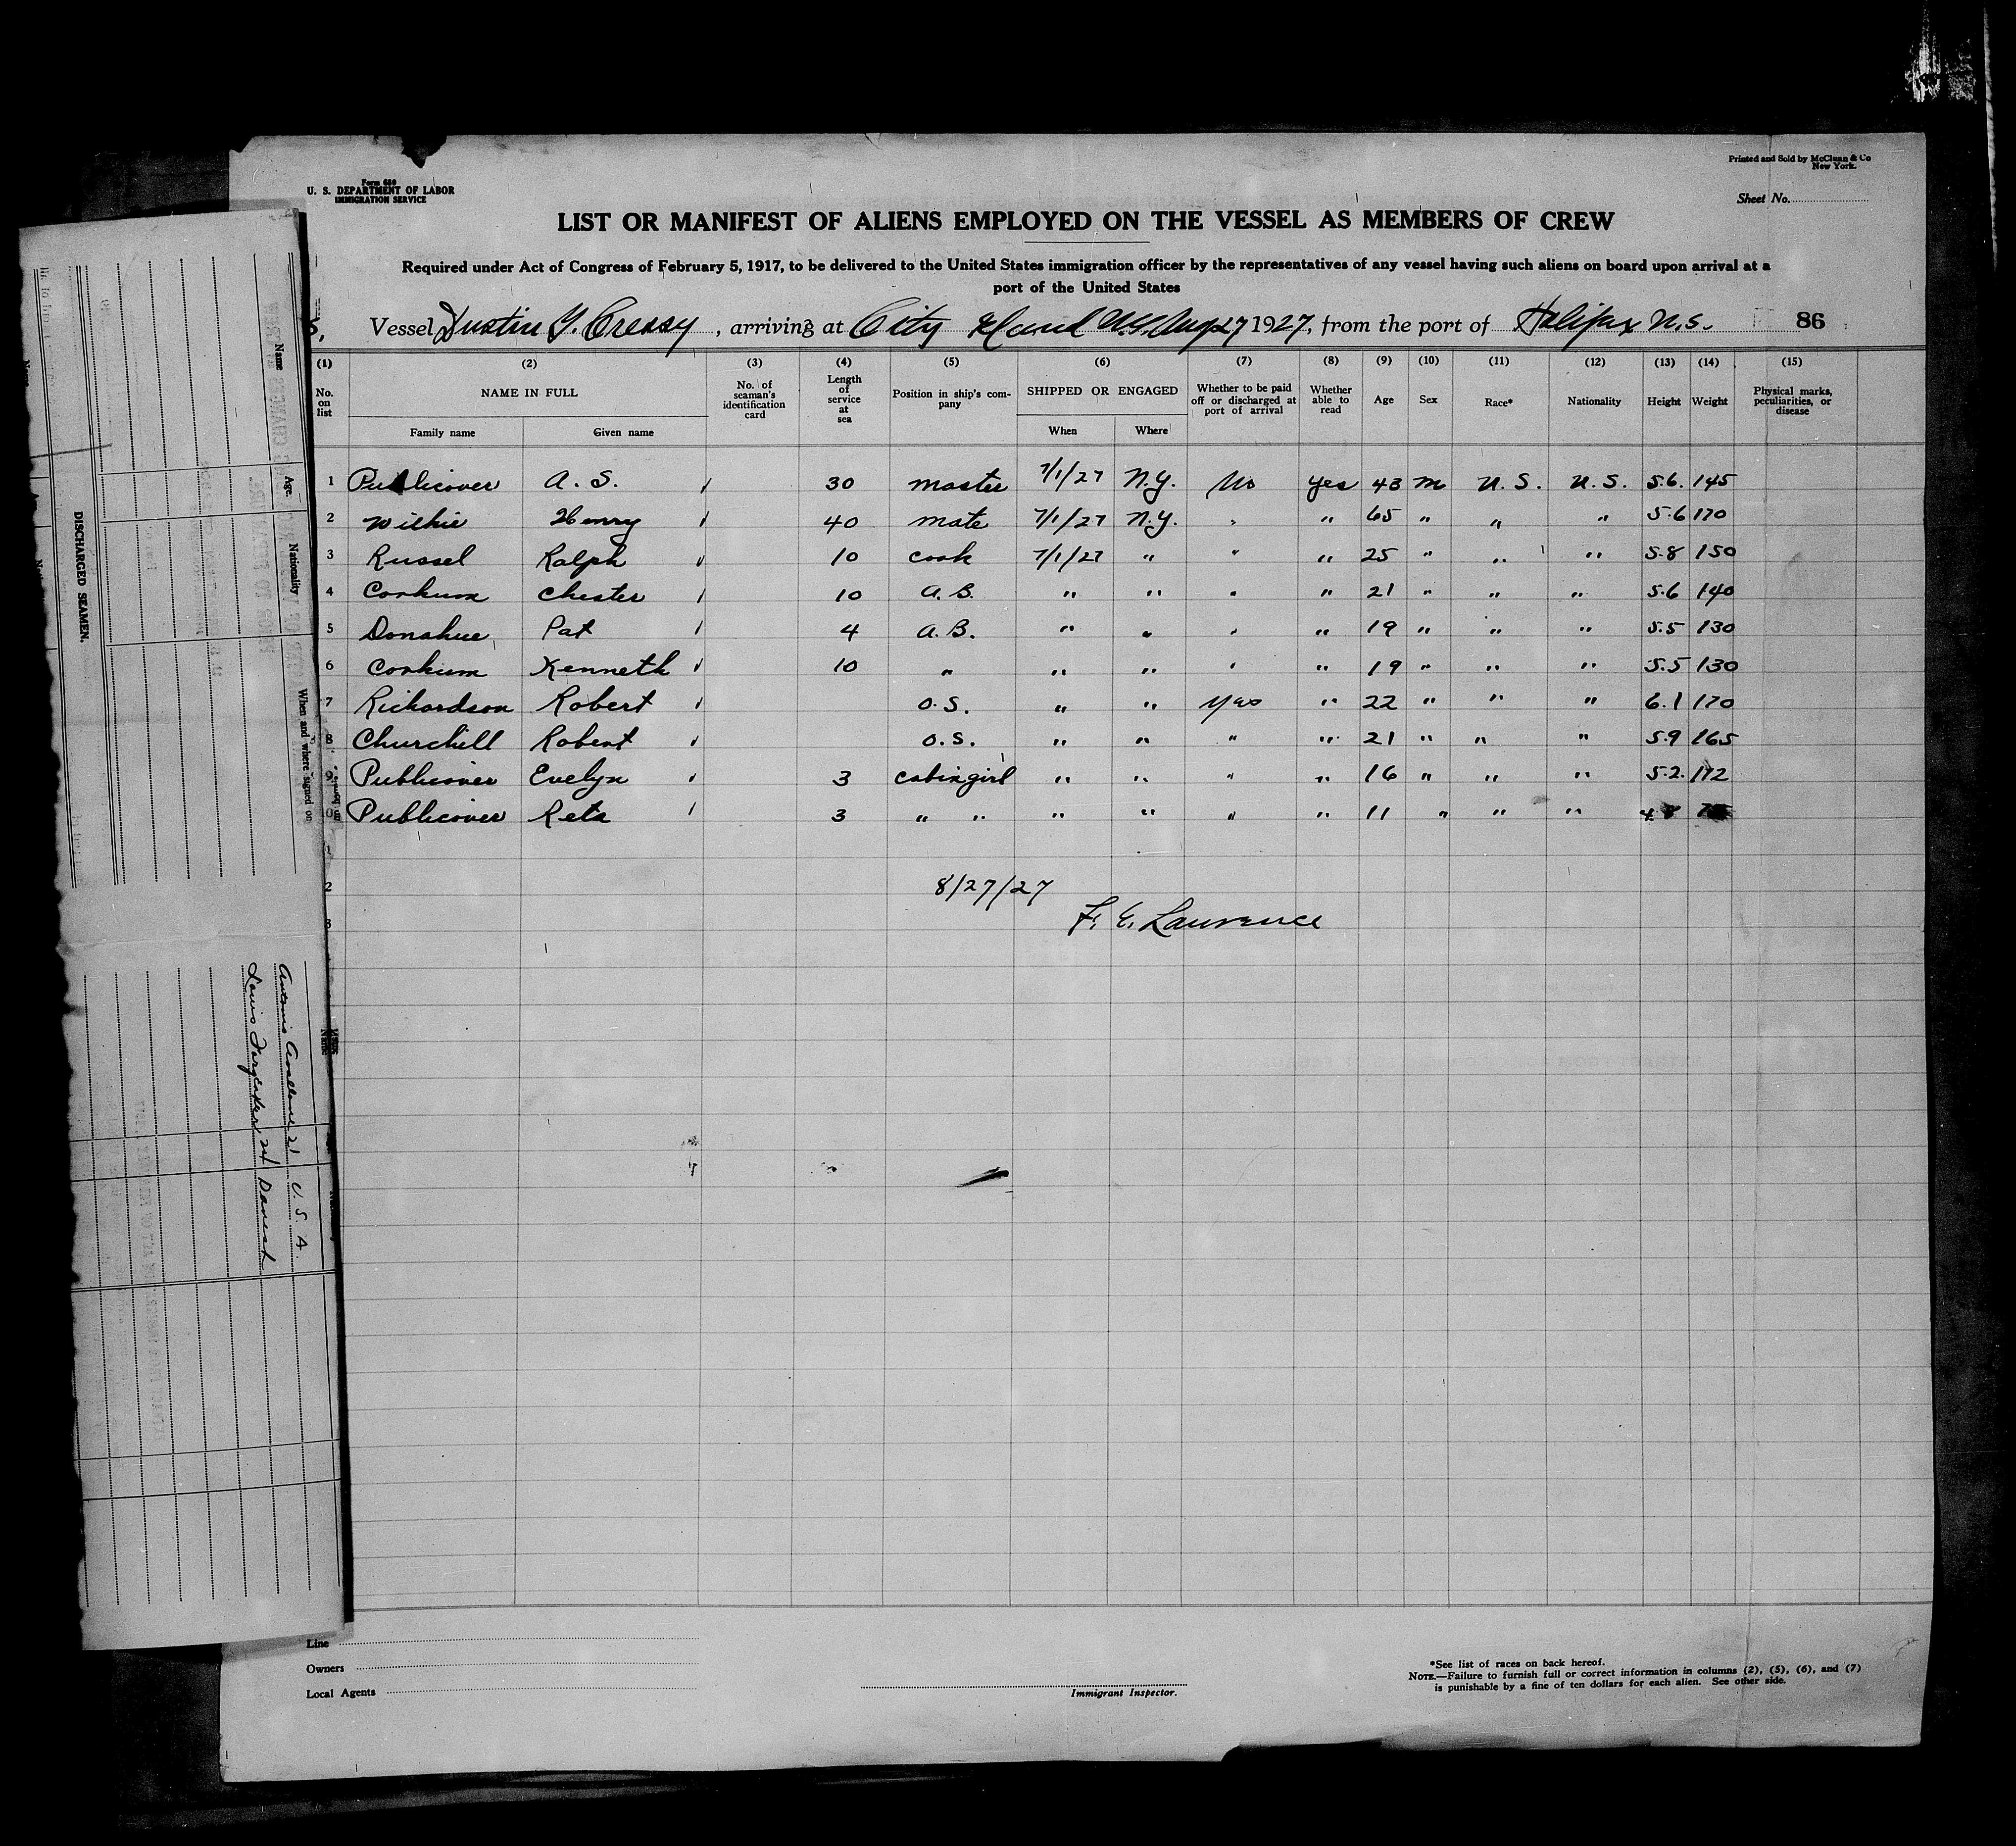 Form 680
U. S. DEPARTMENT OF LABOR
IMMIGRATION SERVICE
Printed and Sold by McClunn & Co
New York.
Sheet No.
LIST OR MANIFEST OF ALIENS EMPLOYED ON THE VESSEL AS MEMBERS OF CREW
Required under Act of Congress of February 5, 1917, to be delivered to the United States immigration officer by the representatives of any vessel having such aliens on board upon arrival at a
port of the United States
Vessel Dustin G. Cressy, arriving at City Island N.Y. Aug 27 1927, from the port of Halifax N.S. 86
(1) (2) (3) (4) (5) (6) (7) (8) (9) (10) (11) (12) (13) (14) (15)
No. on list NAME IN FULL No. of seaman's identification card Length of service at sea Position in ship's company SHIPPED OR ENGAGED Whether to be paid off or discharged at port of arrival Whether able to read Age Sex Race* Nationality Height Weight Physical marks, peculiarities, or disease
Family name Given name When Where
1 Publicover A. S. 30 master 7/1/27 N.Y. No yes 43 m U.S. U.S. 5.6. 145
2 Wilkie Henry 40 mate 7/1/27 N.Y. " " 65 " " " 5.6 170
3 Russel Ralph 10 cook 7/1/27 " " " 25 " " " 5.8 150
4 Corkum Chester 10 A.B. " " " " 21 " " " 5.6 140
5 Donahue Pat 4 A.B. " " " " 19 " " " 5.5 130
6 Corkum Kenneth 10 " " " " " 19 " " " 5.5 130
7 Richardson Robert O.S. " " Yes " 22 " " " 6.1 170
8 Churchill Robert O.S. " " " " 21 " " " 5.9 165
9 Publicover Evelyn 3 cabin girl " " " " 16 " " " 5.2. 112
10 Publicover Reta 3 " " " " " " 11 " " " 4.8
1
2 8/27/27
3 F. E. Lawrence
Line
Owners
Local Agents
Immigrant Inspector.
*See list of races on back hereof.
NOTE.—Failure to furnish full or correct information in columns (2), (5), (6), and (7)
is punishable by a fine of ten dollars for each alien. See other side.
DISCHARGED SEAMEN.
Name Age. Nationality When and where signed on
Antonio 21 U.S.A.
Louis 24 Danish